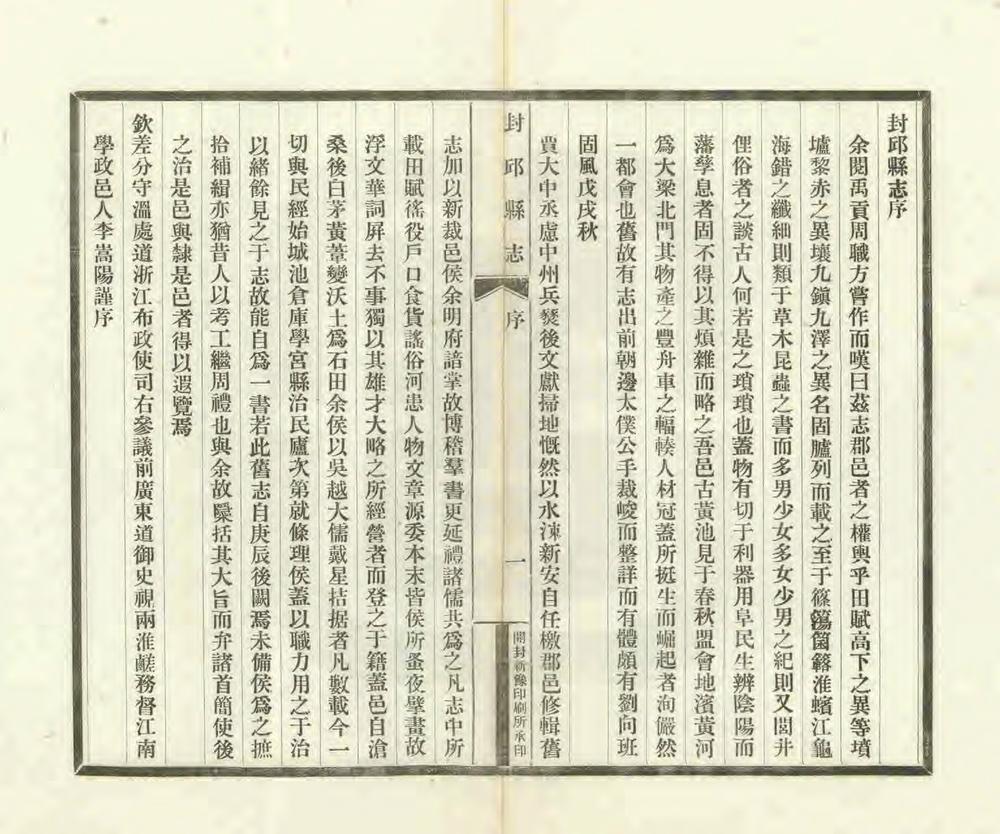 封邱縣志序
余閱禹貢周職方嘗作而嘆曰茲志郡邑者之權輿乎田賦高下之異等墳
壚黎赤之異壤九鎭九澤之異名固臚列而載之至于篠簜箘簵淮蠙江龜
海錯之纖細則類于草木昆蟲之書而多男少女多女少男之紀則又閭井
俚俗者之談古人何若是之瑣瑣也蓋物有切于利器用阜民生辨陰陽而
藩孳息者固不得以其煩雜而略之吾邑古黃池見于春秋盟會地濱黃河
爲大梁北門其物產之豐舟車之輻輳人材冠蓋所挺生而崛起者洵儼然
一都會也舊故有志出前朝邊太僕公手裁峻而整詳而有體頗有劉向班
固風戊戌秋
賈大中丞慮中州兵燹後文獻掃地慨然以水涑新安自任檄郡邑修輯舊
封邱縣志 序 一 開封新豫印刷所承印
志加以新裁邑侯余明府諳掌故博稽羣書更延禮諸儒共爲之凡志中所
載田賦徭役戶口食貨謠俗河患人物文章源委本末皆侯所蚤夜擘畫故
浮文華詞屛去不事獨以其雄才大略之所經營者而登之于籍蓋邑自滄
桑後白茅黃葦變沃土爲石田余侯以吳越大儒戴星拮据者凡數載今一
切與民經始城池倉庫學宮縣治民廬次第就條理侯蓋以職力用之于治
以緒餘見之于志故能自爲一書若此舊志自庚辰後闕焉未備侯爲之摭
拾補緝亦猶昔人以考工繼周禮也與余故檃括其大旨而弁諸首簡使後
之治是邑與隸是邑者得以遐覽焉
欽差分守溫處道浙江布政使司右參議前廣東道御史視兩淮鹺務督江南
學政邑人李嵩陽謹序